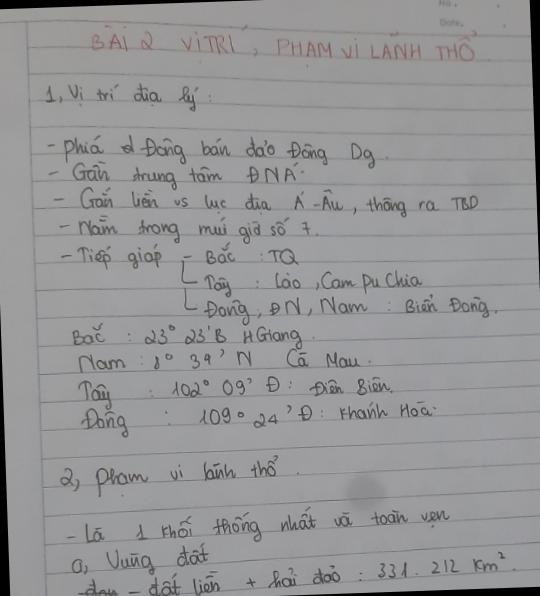 No.
Date.
BÀI 2 VỊ TRÍ, PHẠM VI LÃNH THỔ
1, Vị trí địa lý:
- Phiá Đông bán đảo Đông Dg.
- Gần trung tâm ĐNÁ.
- Gắn liền vs lục địa Á-Âu, thông ra TBD
- Nằm trong múi giờ số 7.
- Tiếp giáp - Bắc : TQ
Tây : Lào, Cam pu chia
Đông, ĐN, Nam : Biển Đông.
Bắc : 23° 23'B H Giang.
Nam : 8° 34' N Cà Mau.
Tây : 102° 09' Đ: Điện Biên.
Đông : 109° 24' Đ: Khánh Hoà.
2, phạm vi lãnh thổ.
- Là 1 khối thống nhất và toàn vẹn
a, Vùng đất
- đất liền + hải đảo : 331.212 Km².